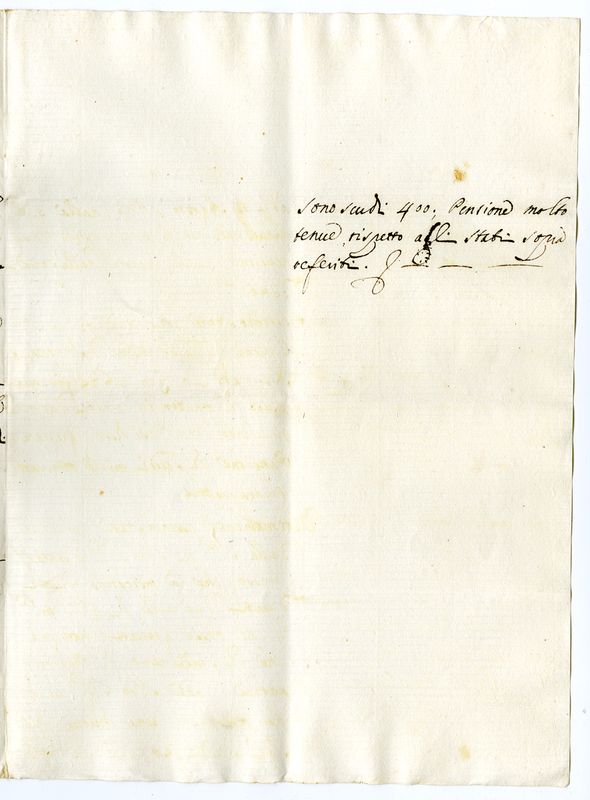 Sono scudi 400: Pensione molto
tenue, rispetto alli stati sopra
referiti.